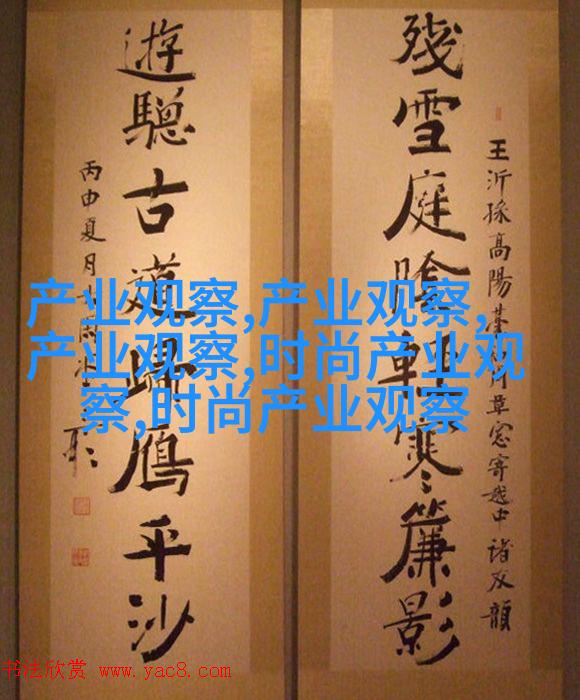 殘雪庭陰輕寒簾影
王沂孫高陽臺
草窓寄越中諸友韻
遊驄古道歸鴈平沙
丙申夏月
产业观察,产业观察,
产业观察,时尚产业观
察,时尚产业观察
书法欣赏 www.yac8.com